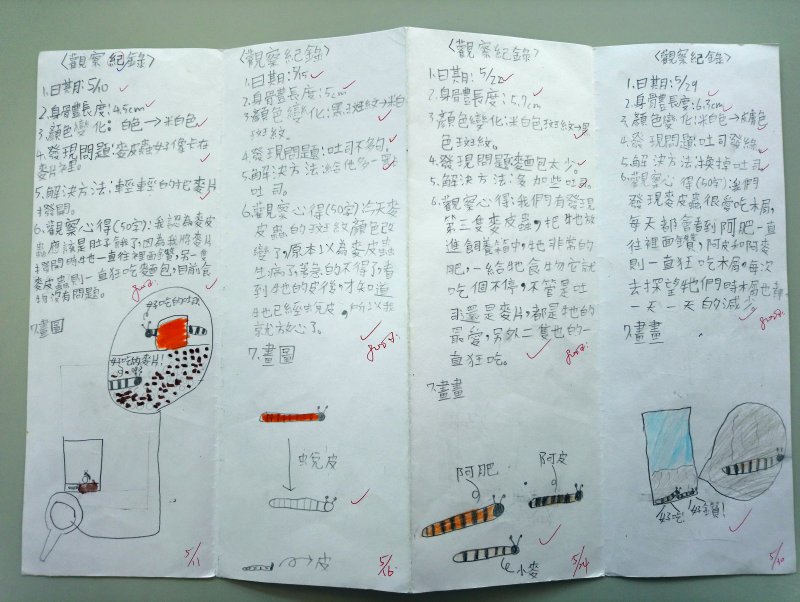 〈觀察紀錄〉
1.日期:5/10
2.身體長度:4.5cm
3.顏色變化:白色→米白色
4.發現問題:麥皮蟲好像卡在
麥片裡。
5.解決方法:輕輕的把麥片
撥開。
6.觀察心得(50字):我認為麥皮
蟲應該是肚子餓了,因為我將麥片
撥開時牠一直往裡面鑽,另一隻
麥皮蟲則一直狂吃麵包,目前食
物沒有問題。
7.畫圖
好吃的吐司
好吃的麥片!
5/11
〈觀察紀錄〉
1.日期:5/15
2.身體長度:5cm
3.顏色變化:黑斑紋→米白
斑紋。
4.發現問題:吐司不夠。
5.解決方法:給他多一點
吐司。
6.觀察心得(50字)今天麥
皮蟲的斑紋顏色改
變了,原本以為麥皮蟲
生病了,著急的不得了,看
到牠的皮後,才知道
牠已經蛻皮,所以我
就放心了。
7.畫圖
蛻皮
皮
5/16.
〈觀察紀錄〉
1.日期:5/22
2.身體長度:5.7cm
3.顏色變化:米白色斑紋→黑
色斑紋。
4.發現問題:麵包太少。
5.解決方法:多加些吐司。
6.觀察心得:我們有發現
第三隻麥皮蟲,把牠放
進飼養箱中,牠非常的
肥,一給牠食物它就
吃個不停,不管是吐
司還是麥片,都是牠的
最愛,另外二隻也的一
直狂吃。
7.畫畫
阿肥
阿皮
小麥
5/24
〈觀察紀錄〉
1.日期:5/29
2.身體長度:6.3cm
3.顏色變化:米白色→膚色
4.發現問題:吐司發綠
5.解決方法:換掉吐司
6.觀察心得(50字)我們
發現麥皮蟲很愛吃木屑,
每天都會看到阿肥一直
往裡面鑽,阿皮和阿麥
則一直狂吃木屑,每次
去探望牠們時木屑也都
一天一天的減少。
7.畫畫
好吃!
好鑽!
5/30